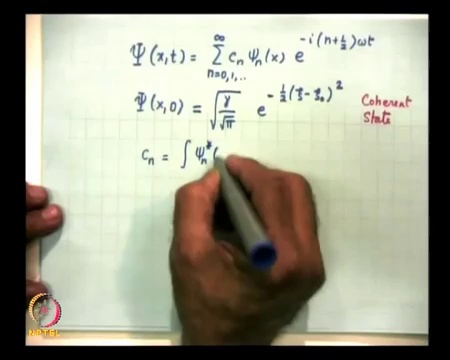 Ψ(x,t) = ∑_{n=0,1,..}^{∞} c_n ψ_n(x) e^{-i(n+½)ωt}
Ψ(x,0) = √(γ/√π) e^{-½(ξ-ξ_0)^2}
Coherent
State
c_n = ∫ ψ_n^*(
NPTEL